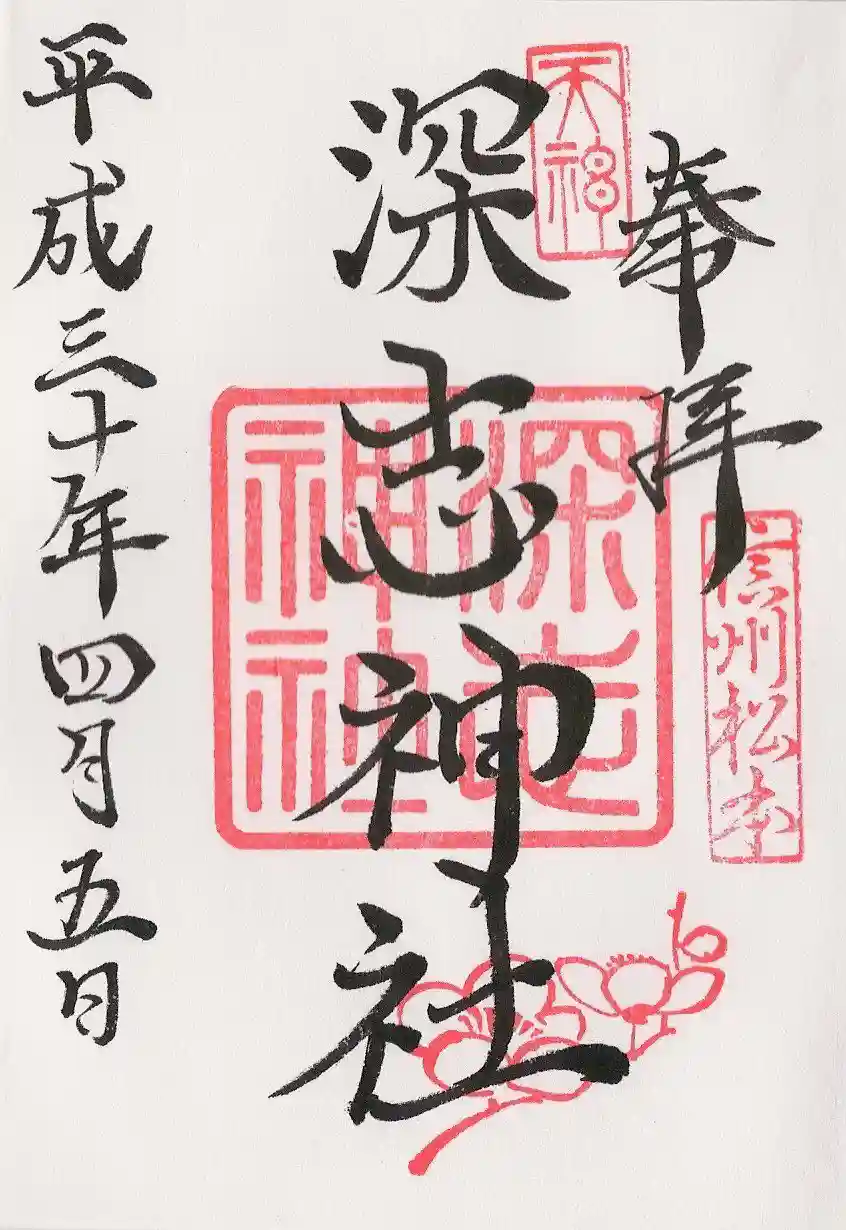 奉拝
信州松本
天神
深志神社
深志
神社
平成三十年四月五日